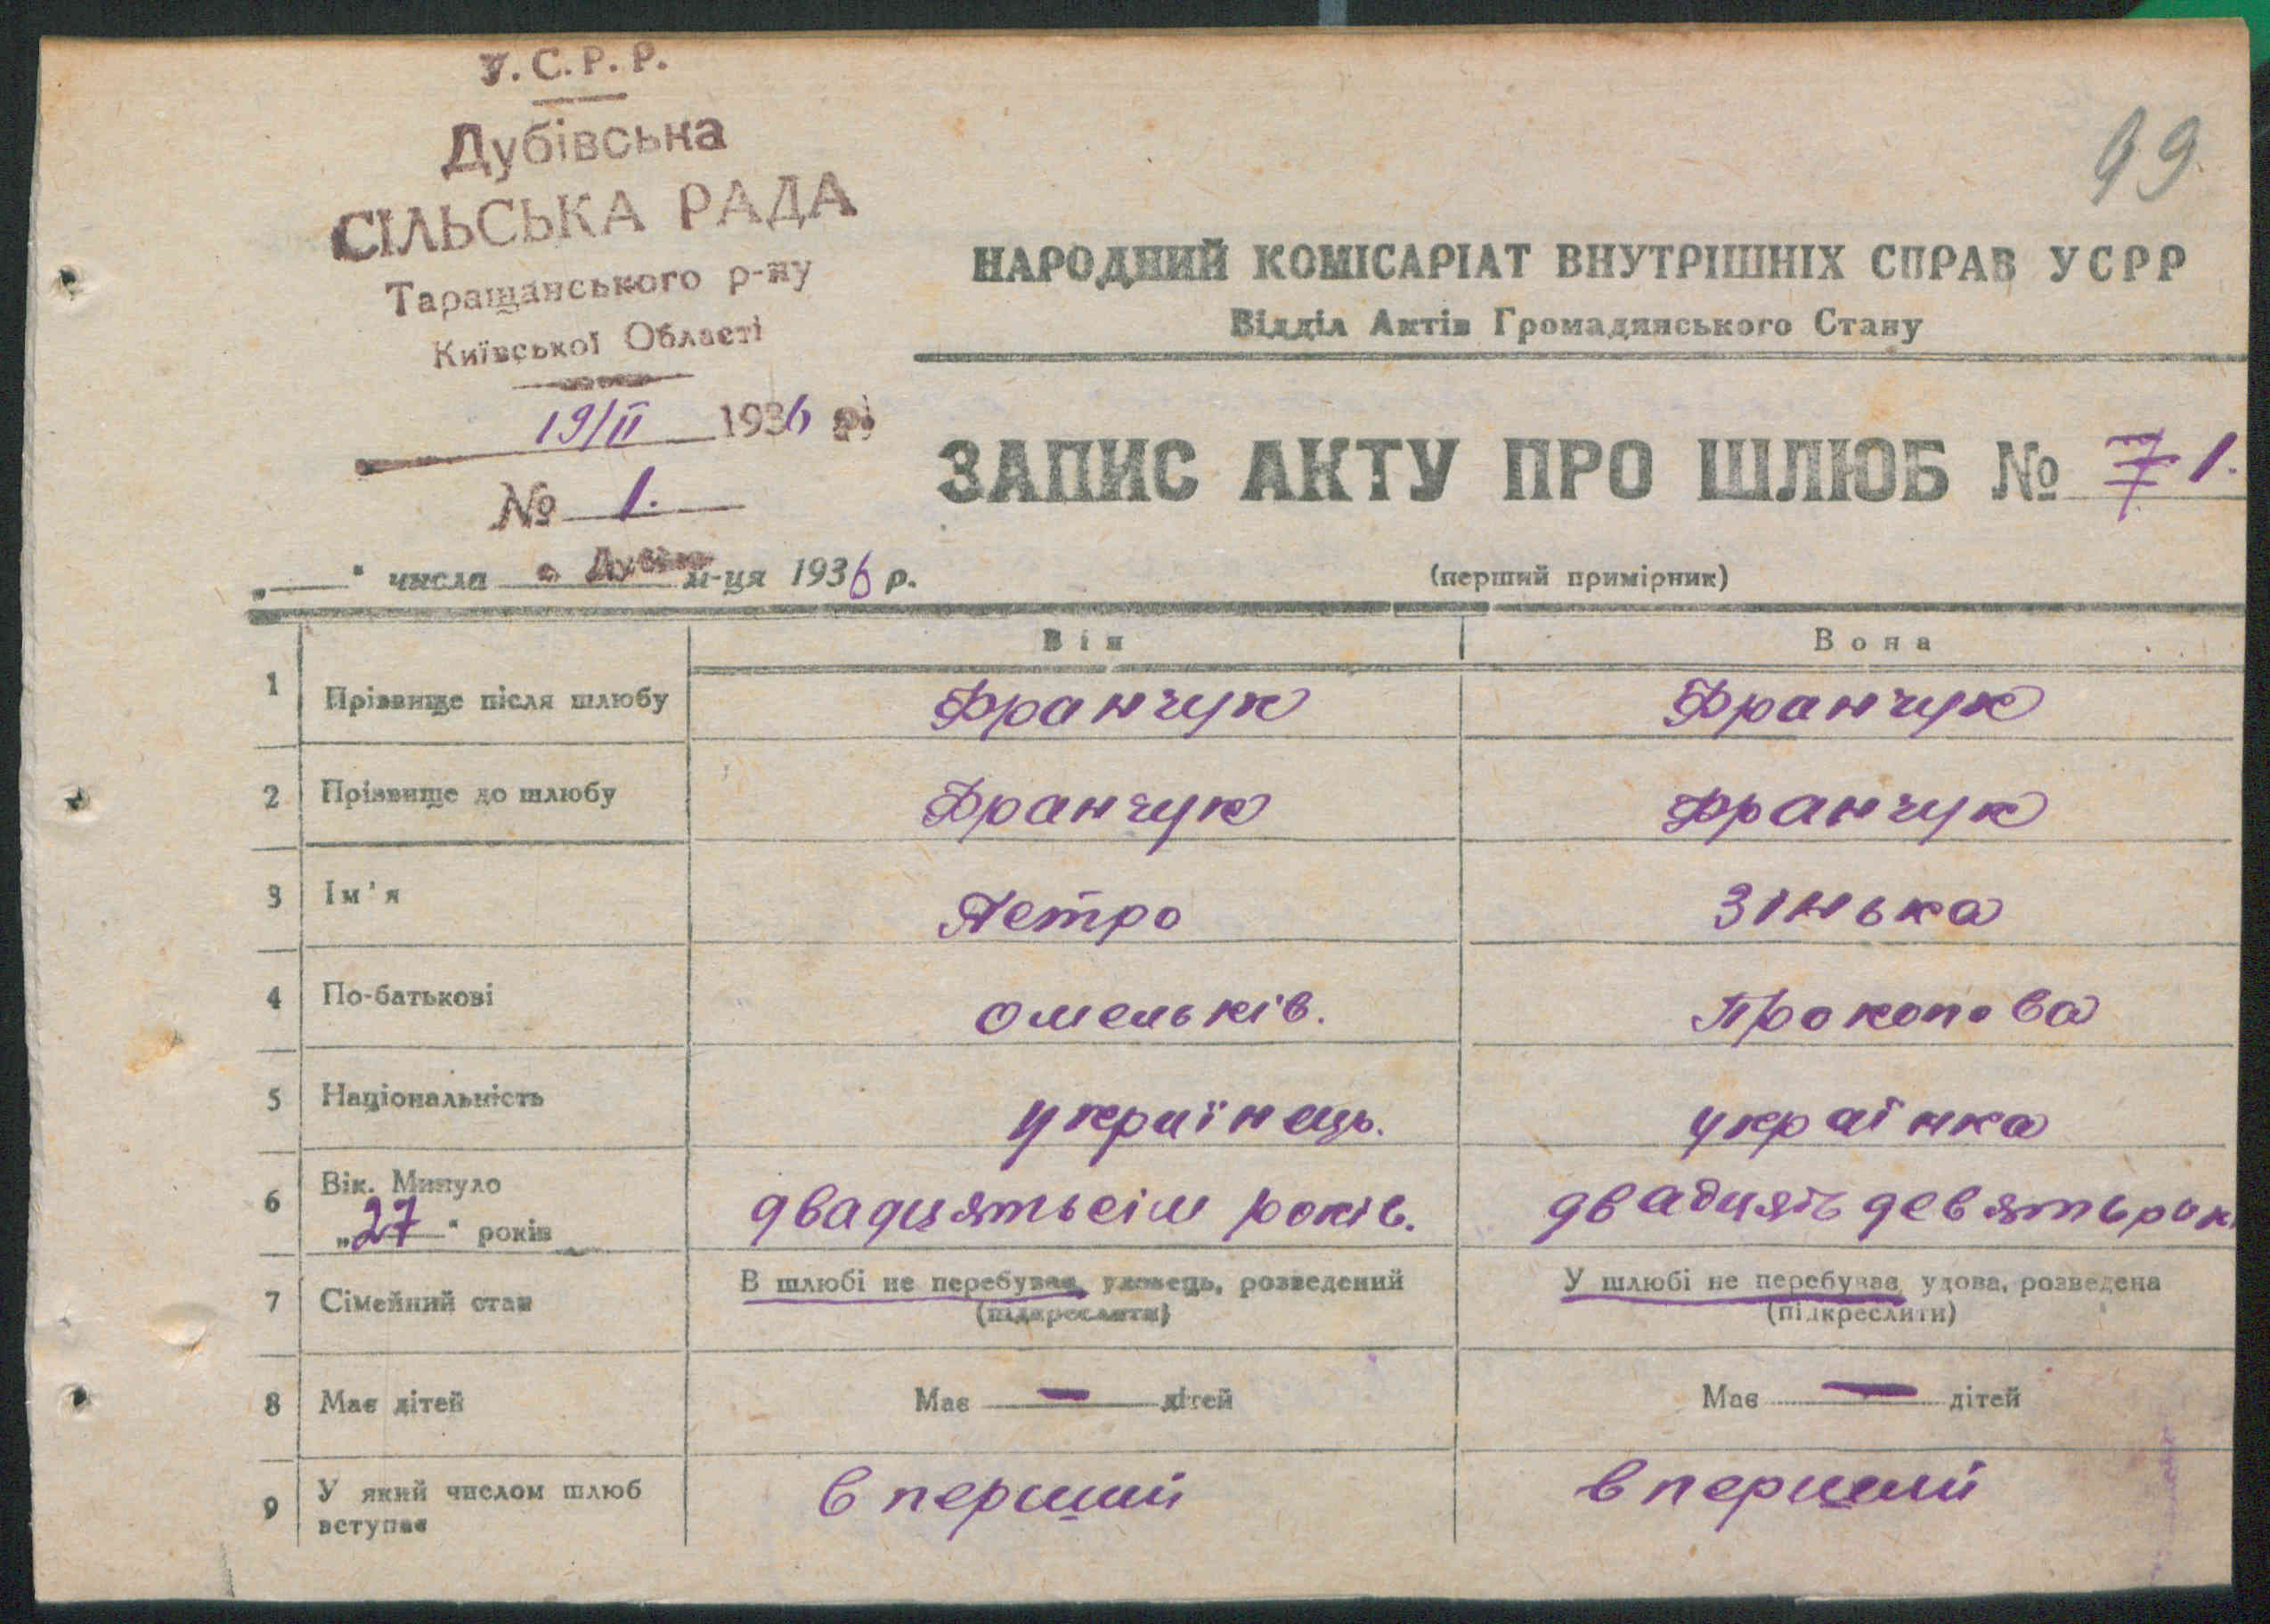 У.С.Р.Р.
Дубівська
СІЛЬСЬКА РАДА
Таращанського р-ну
Київської Області
19/II 1936 р.
№ 1.
99
НАРОДНИЙ КОМІСАРІАТ ВНУТРІШНІХ СПРАВ УСРР
Відділ Актів Громадянського Стану
ЗАПИС АКТУ ПРО ШЛЮБ № 7 1.
„ — " числа с. м-ця 1936 р.
(перший примірник)
Він Вона
1 Прізвище після шлюбу Франчук Франчук
2 Прізвище до шлюбу Франчук Франчук
3 Ім'я Петро Зінька
4 По-батькові Омельків. Прокопова
5 Національність українець. українка
6 Вік. Минуло
„27" років двадцятьсім років. двадцять девять рок
7 Сімейний стан В шлюбі не перебуває, удовець, розведений У шлюбі не перебуває, удова, розведена
(підкреслити) (підкреслити)
8 Має дітей Має — дітей Має — дітей
9 У який числом шлюб
вступає в перший в перший